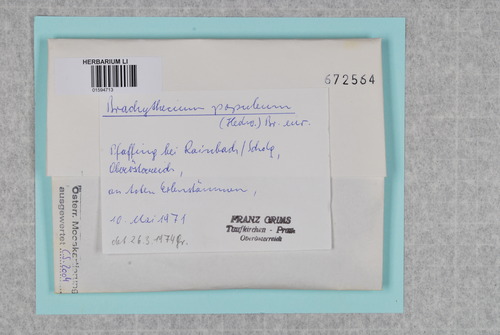 HERBARIUM LI
01594713
672564
Brachythecium populeum
(Hedw.) Br. eur.
Pfaffing bei Rainbach/Schdg,
Oberösterreich,
an toten Erlenstämmen,
10. Mai 1971
det 26.3.1974 Gr.
FRANZ GRIMS
Taufkirchen - Pram
Oberösterreich
Österr. Mooskartierung
ausgewertet